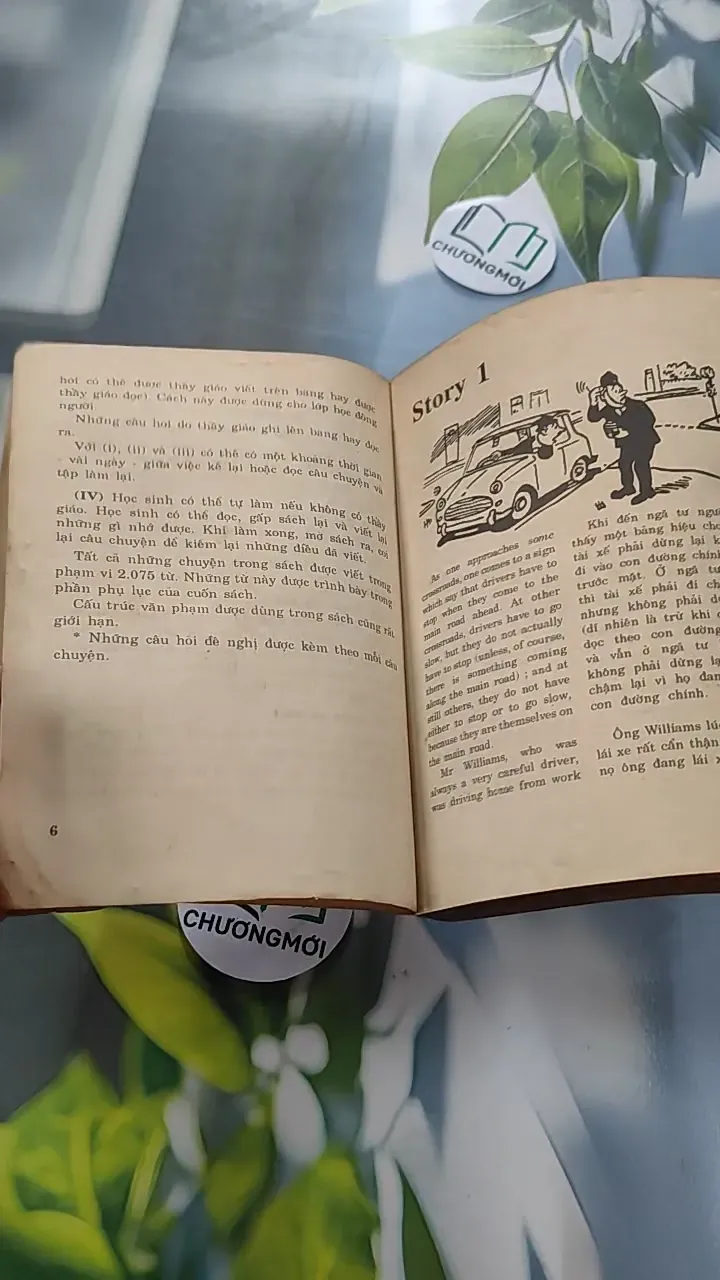 CHƯƠNGMỚI
hỏi có thể được thầy giáo viết trên bảng hay được
thầy giáo đọc). Cách này được dùng cho lớp học đông
người
Những câu hỏi do thầy giáo ghi lên bảng hay đọc
ra.
Với (i), (ii) và (iii) có thể có một khoảng thời gian
- vài ngày - giữa việc kể lại hoặc đọc câu chuyện và
tập làm lại.
(IV) Học sinh có thể tự làm nếu không có thầy
giáo. Học sinh có thể đọc, gấp sách lại và viết lại
những gì nhớ được. Khi làm xong, mở sách ra, coi
lại câu chuyện để kiểm lại những điều đã viết.
Tất cả những chuyện trong sách được viết trong
phạm vi 2.075 từ. Những từ này được trình bày trong
phần phụ lục của cuốn sách.
Cấu trúc văn phạm được dùng trong sách cũng rất
giới hạn.
* Những câu hỏi đề nghị được kèm theo mỗi câu
chuyện.
6
Story 1
As one approaches some
crossroads, one comes to a sign
which say that drivers have to
stop when they come to the
main road ahead. At other
crossroads, drivers have to go
slow, but they do not actually
have to stop (unless, of course,
there is something coming
along the main road) ; and at
still others, they do not have
either to stop or to go slow,
because they are themselves on
the main road.
Mr Williams, who was
always a very careful driver,
was driving home from work
Khi đến ngã tư
thấy một bảng hiệu
tài xế phải dừng lại
đi vào con đường
trước mặt. Ở ngã tư
thì tài xế phải đi
nhưng không phải
(dĩ nhiên là trừ khi
dọc theo con đường
và vẫn ở ngã tư
không phải dừng
chậm lại vì họ
con đường chính.
Ông Williams
lái xe rất cẩn thận
nọ ông đang lái
CHƯƠNGMỚI